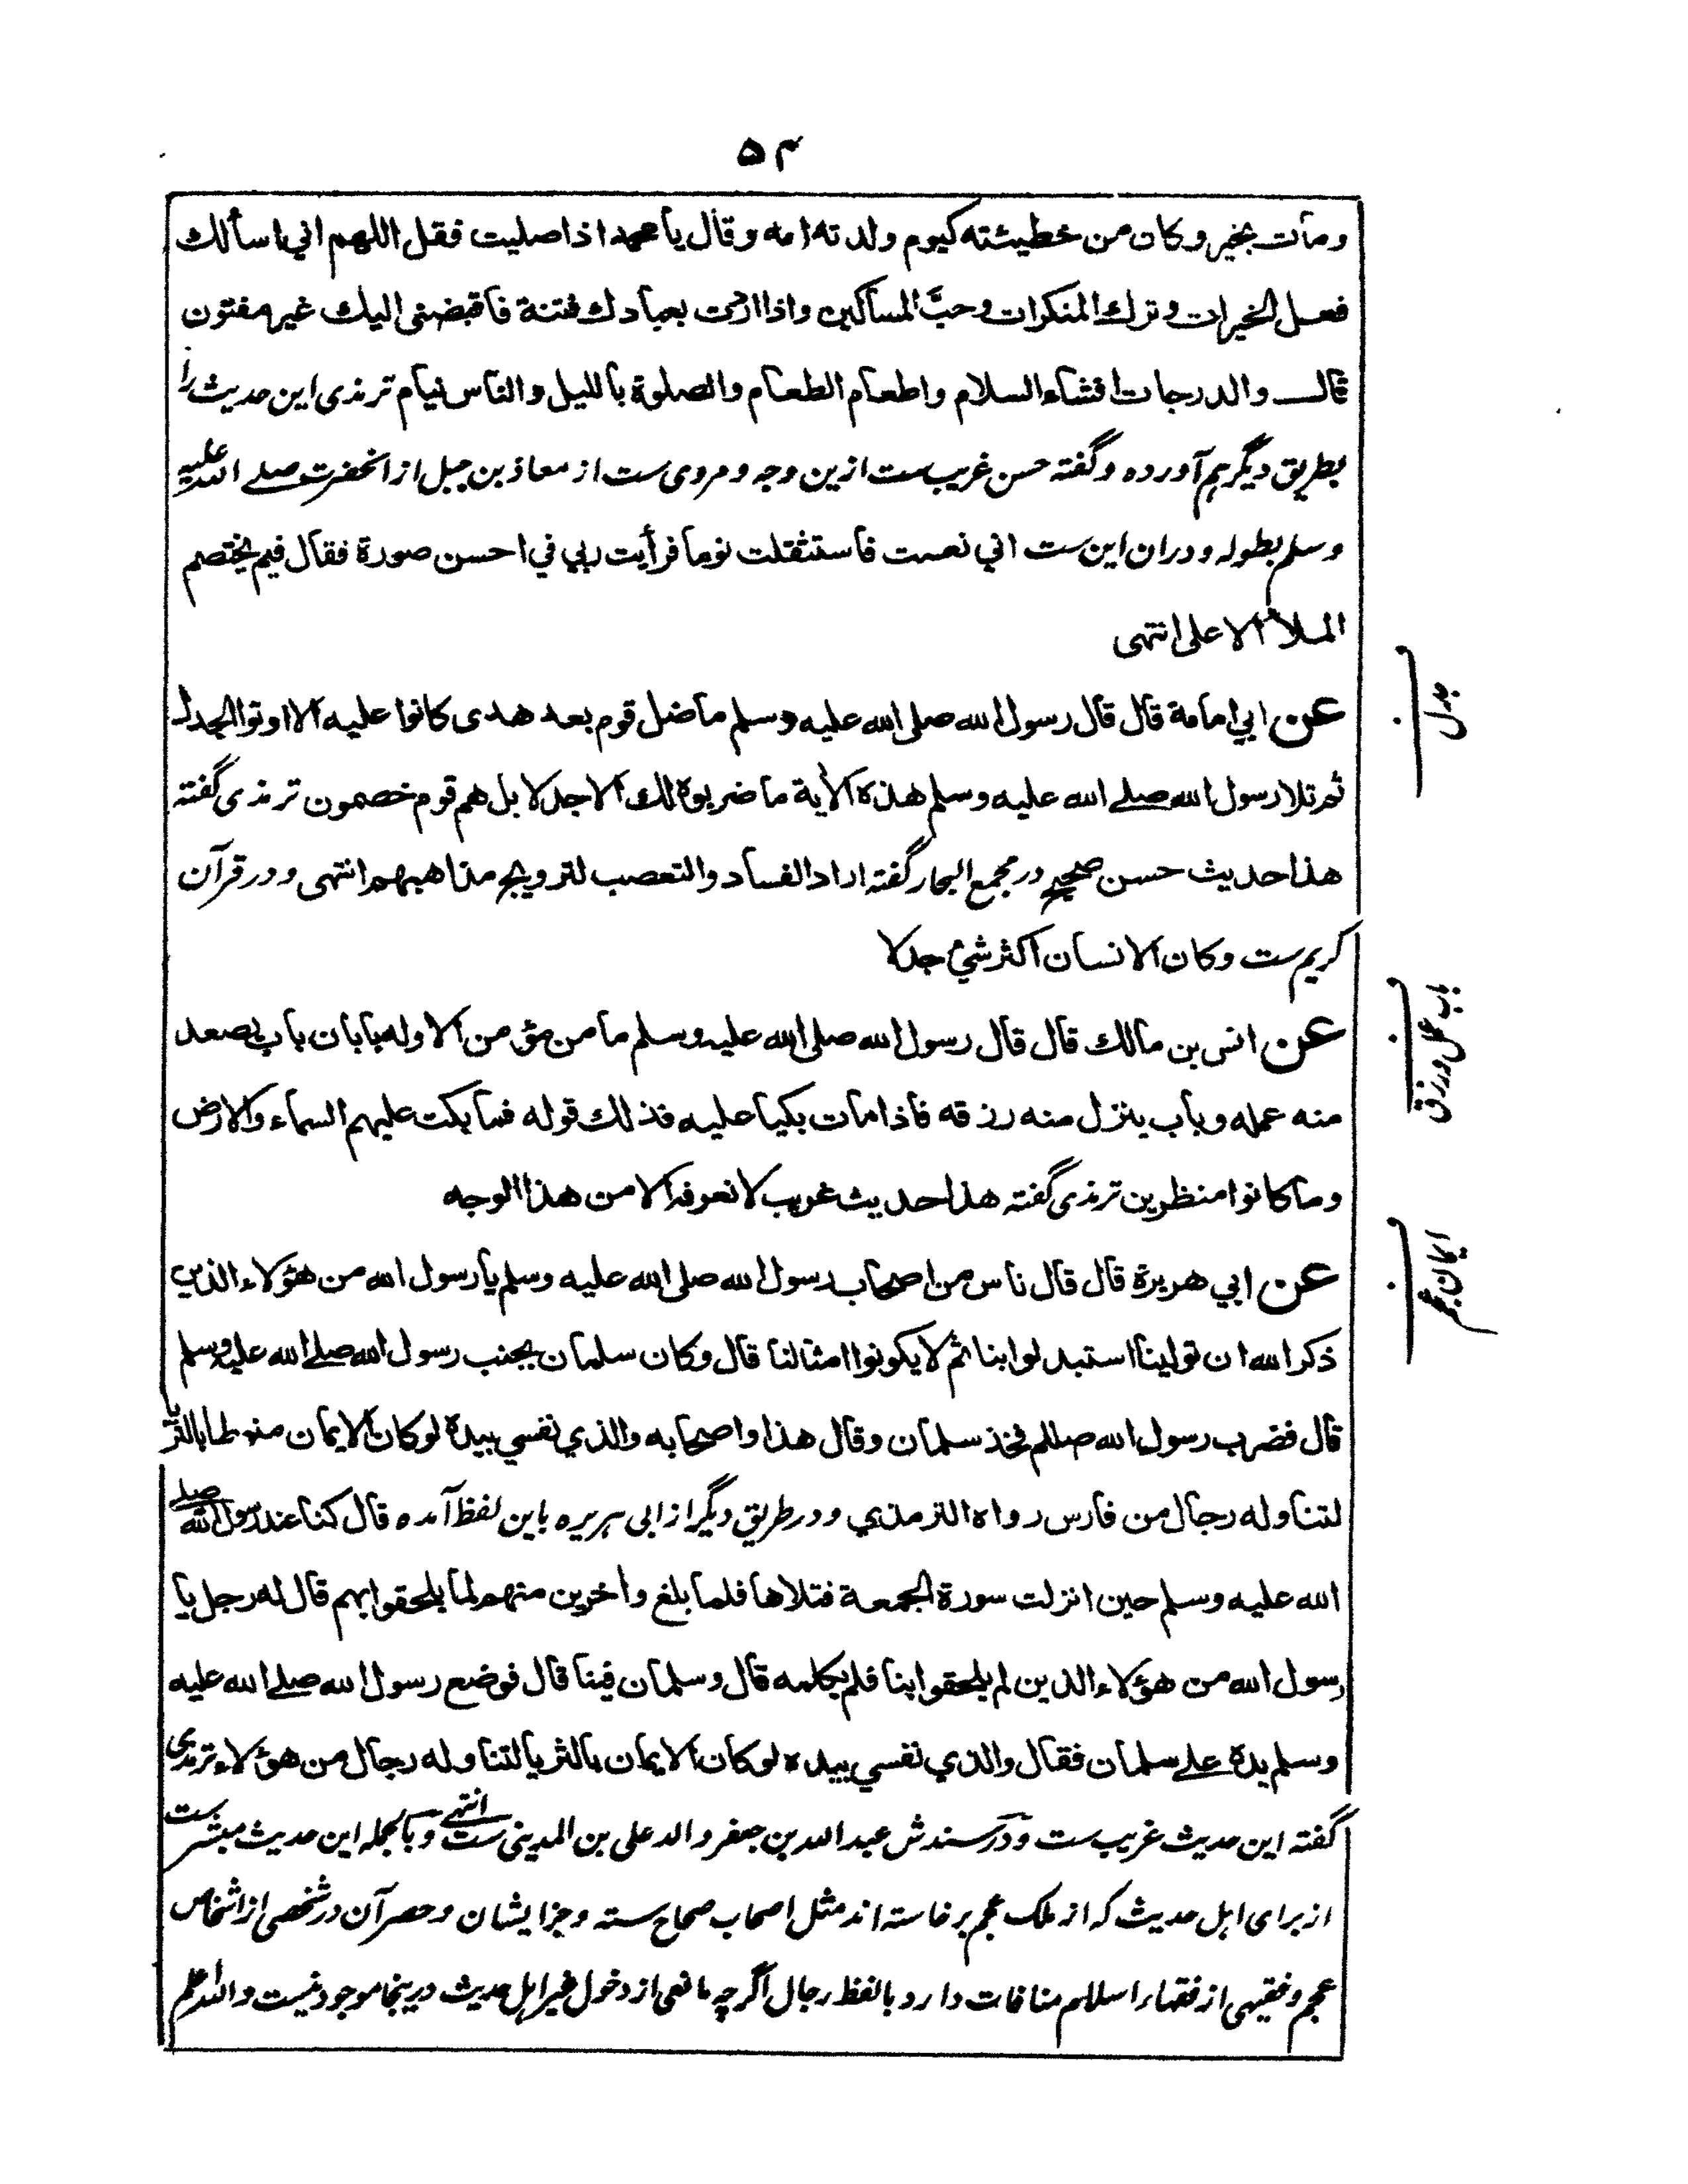 ۵۴
ومات بخير وكان من خطيئته كيوم ولدته امه وقال يا محمد اذا صليت فقل اللهم اني اسألك
فعل الخيرات وترك المنكرات وحبّ المساكين واذا اردت بعبادك فتنة فاقبضنى اليك غير مفتون
قال والدرجات افشاء السلام واطعام الطعام والصلوة بالليل والناس نيام ترمذی این حدیث را
بطریق دیگر ہم آورده وگفته حسن غریب ست ازین وجه ومروی ست از معاذ بن جبل از آنحضرت صلے الله علیہ
وسلم بطوله ودران این ست اني نعست فاستثقلت نوما فرأيت ربي في احسن صورة فقال فيم يختصم
الملأ الاعلى انتهى
جدل
عن ابي امامة قال قال رسول الله صلى الله عليه وسلم ما ضل قوم بعد هدى كانوا عليه الا اوتوا الجدل
ثم تلا رسول الله صلے الله عليه وسلم هذه الآية ما ضربوه لك الا جدلا بل هم قوم خصمون ترمذی گفته
هذا حديث حسن صحيح در مجمع البحار گفته اراد الفساد والتعصب لترويج مذاهبهم انتهى ودر قرآن
کریم ست وكان الانسان اكثر شيء جدلا
باب عمل ورزق
عن انس بن مالك قال قال رسول الله صلى الله عليه وسلم ما من مؤمن الا وله بابان باب يصعد
منه عمله وباب ينزل منه رزقه فاذا مات بكيا عليه فذلك قوله فما بكت عليهم السماء والارض
وما كانوا منظرين ترمذی گفته هذا حديث غريب لا نعرفه الا من هذا الوجه
ایمان عجم
عن ابي هريرة قال قال ناس من اصحاب رسول الله صلى الله عليه وسلم يا رسول الله من هؤلاء الذين
ذكر الله ان تولينا استبدلوا بنا ثم لا يكونوا امثالنا قال وكان سلمان بجنب رسول الله صلے الله عليه وسلم
قال فضرب رسول الله صللم فخذ سلمان وقال هذا واصحابه والذي نفسي بيده لو كان الايمان منوطا بالثريا
لتناوله رجال من فارس رواه الترمذي ودر طریق دیگر از ابی ہریره باین لفظ آمده قال كنا عند رسول الله صلے
الله عليه وسلم حين انزلت سورة الجمعة فتلاها فلما بلغ وآخرين منهم لما يلحقوا بهم قال له رجل يا
رسول الله من هؤلاء الذين لم يلحقوا بنا فلم يكلمه قال وسلمان فينا قال فوضع رسول الله صلے الله عليه
وسلم يده علے سلمان فقال والذي نفسي بيده لو كان الايمان بالثريا لتناوله رجال من هؤلاء ترمذی
گفته این حدیث غریب ست ودر سندش عبد الله بن جعفر والد علی بن المدینی ست انتہے وبالجمله این حدیث مبشر ست
از برای اہل حدیث که از ملک عجم برخاسته اند مثل اصحاب صحاح سته وجزایشان وحصر آن در شخصی از اشخاص
عجم وفقیہی از فقهاء اسلام منافات دارد بالفظ رجال اگرچه مانعی از دخول غیر اہل حدیث درینجا موجود نیست والله اعلم